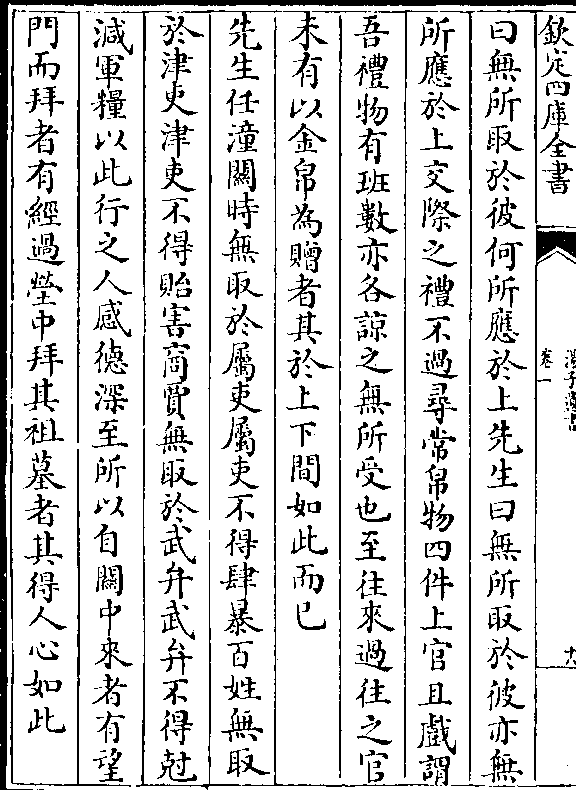 欽定四庫全書
湯子遺書
卷一
曰無所取於彼何所應於上先生曰無所取於彼亦無
所應於上交際之禮不過尋常帛物四件上官且戲謂
吾禮物有班數亦各諒之無所受也至往來過往之官
未有以金帛為贈者其於上下間如此而已
先生任潼關時無取於屬吏屬吏不得肆暴百姓無取
於津吏津吏不得貽害商賈無取於武弁武弁不得尅
減軍糧以此行之人感德深至所以自關中來者有望
門而拜者有經過塋中拜其祖墓者其得人心如此